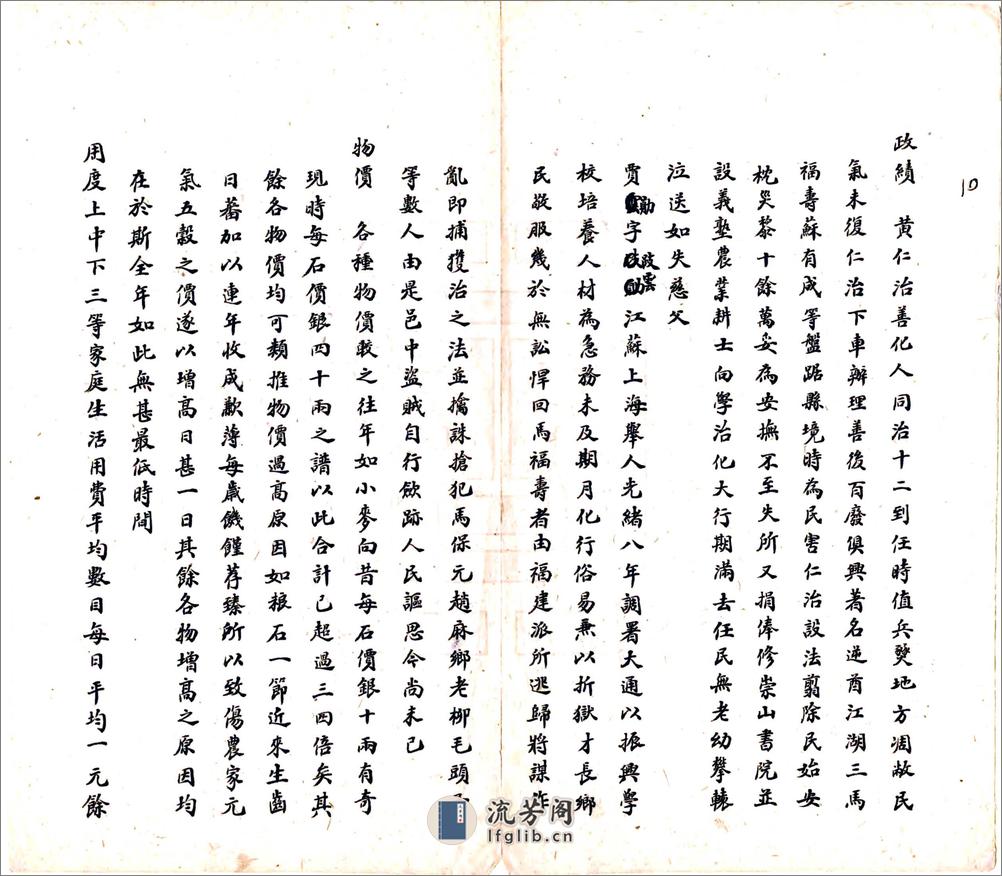 10
政績　黃仁治善化人同治十二到任時值兵燹地方凋敝民
氣未復仁治下車辦理善後百廢俱興著名逆酋江湖三馬
福壽蘇有成等盤踞縣境時為民害仁治設法翦除民始安
枕災黎十餘萬妥為安撫不至失所又捐俸修崇山書院並
設義塾農業耕士向學治化大行期滿去任民無老幼攀轅
泣送如失慈父
賈勛字政雲江蘇上海舉人光緒八年調署大通以振興學
校培養人材為急務未及期月化行俗易兼以折獄才長鄉
民敬服幾於無訟悍回馬福壽者由福建派所逃歸將謀作
亂即捕獲治之法並擒誅搶犯馬保元趙麻鄉老柳毛頭子
等數人由是邑中盜賊自行斂跡人民謳思今尚未已
物價　各種物價較之往年如小麥向昔每石價銀十兩有奇
現時每石價銀四十兩之譜以此合計已超過三四倍矣其
餘各物價均可類推物價過高原因如粮石一節近來生齒
日蕃加以連年收成歉薄每歲饑饉荐臻所以致傷農家元
氣五穀之價遂以增高日甚一日其餘各物增高之原因均
在於斯全年如此無甚最低時間
用度上中下三等家庭生活用費平均數目每日平均一元餘
流芳阁
lfglib.cn